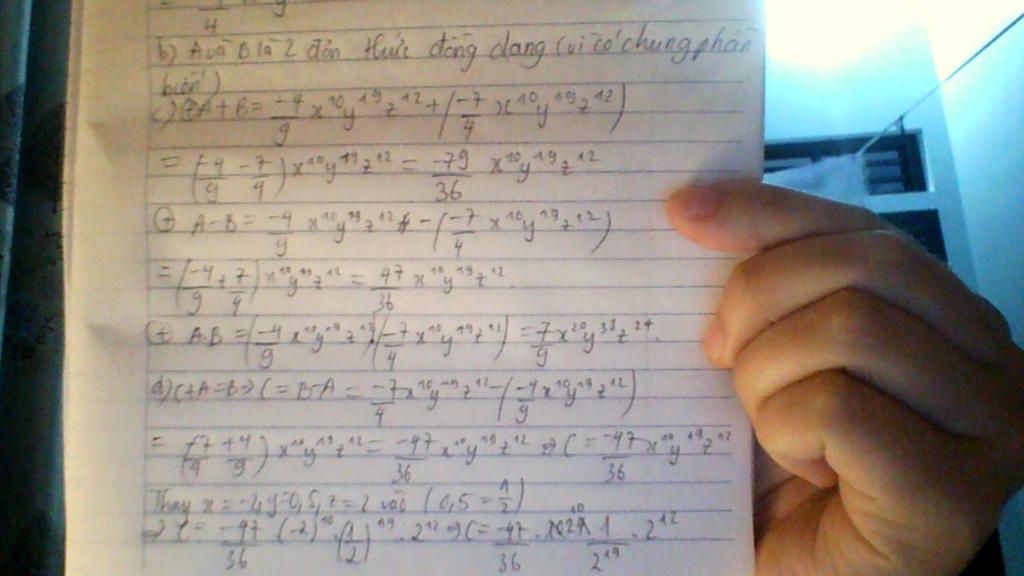 4
b) A và B là 2 đơn thức đồng dạng (vì có chung phần
biến)
c) ⊕ A + B = \frac{-4}{9} x^{10}y^{19}z^{12} + (\frac{-7}{4} x^{10}y^{19}z^{12})
= (\frac{-4}{9} - \frac{7}{4}) x^{10}y^{19}z^{12} = \frac{-79}{36} x^{10}y^{19}z^{12}
⊕ A - B = \frac{-4}{9} x^{10}y^{19}z^{12} - (\frac{-7}{4} x^{10}y^{19}z^{12})
= (\frac{-4}{9} + \frac{7}{4}) x^{10}y^{19}z^{12} = \frac{47}{36} x^{10}y^{19}z^{12}.
⊕ A.B = (\frac{-4}{9} x^{10}y^{19}z^{12}).(\frac{-7}{4} x^{10}y^{19}z^{12}) = \frac{7}{9} x^{20}y^{38}z^{24}.
d) C + A = B => C = B - A = \frac{-7}{4} x^{10}y^{19}z^{12} - (\frac{-4}{9} x^{10}y^{19}z^{12})
= (\frac{-7}{4} + \frac{4}{9}) x^{10}y^{19}z^{12} = \frac{-47}{36} x^{10}y^{19}z^{12} => C = \frac{-47}{36} x^{10}y^{19}z^{12}
Thay x = -2, y = 0,5, z = 2 với (0,5 = \frac{1}{2})
=> C = \frac{-47}{36} . (-2)^{10} . (\frac{1}{2})^{19} . 2^{12} => C = \frac{-47}{36} . \frac{1}{2^{19}} . 2^{12}